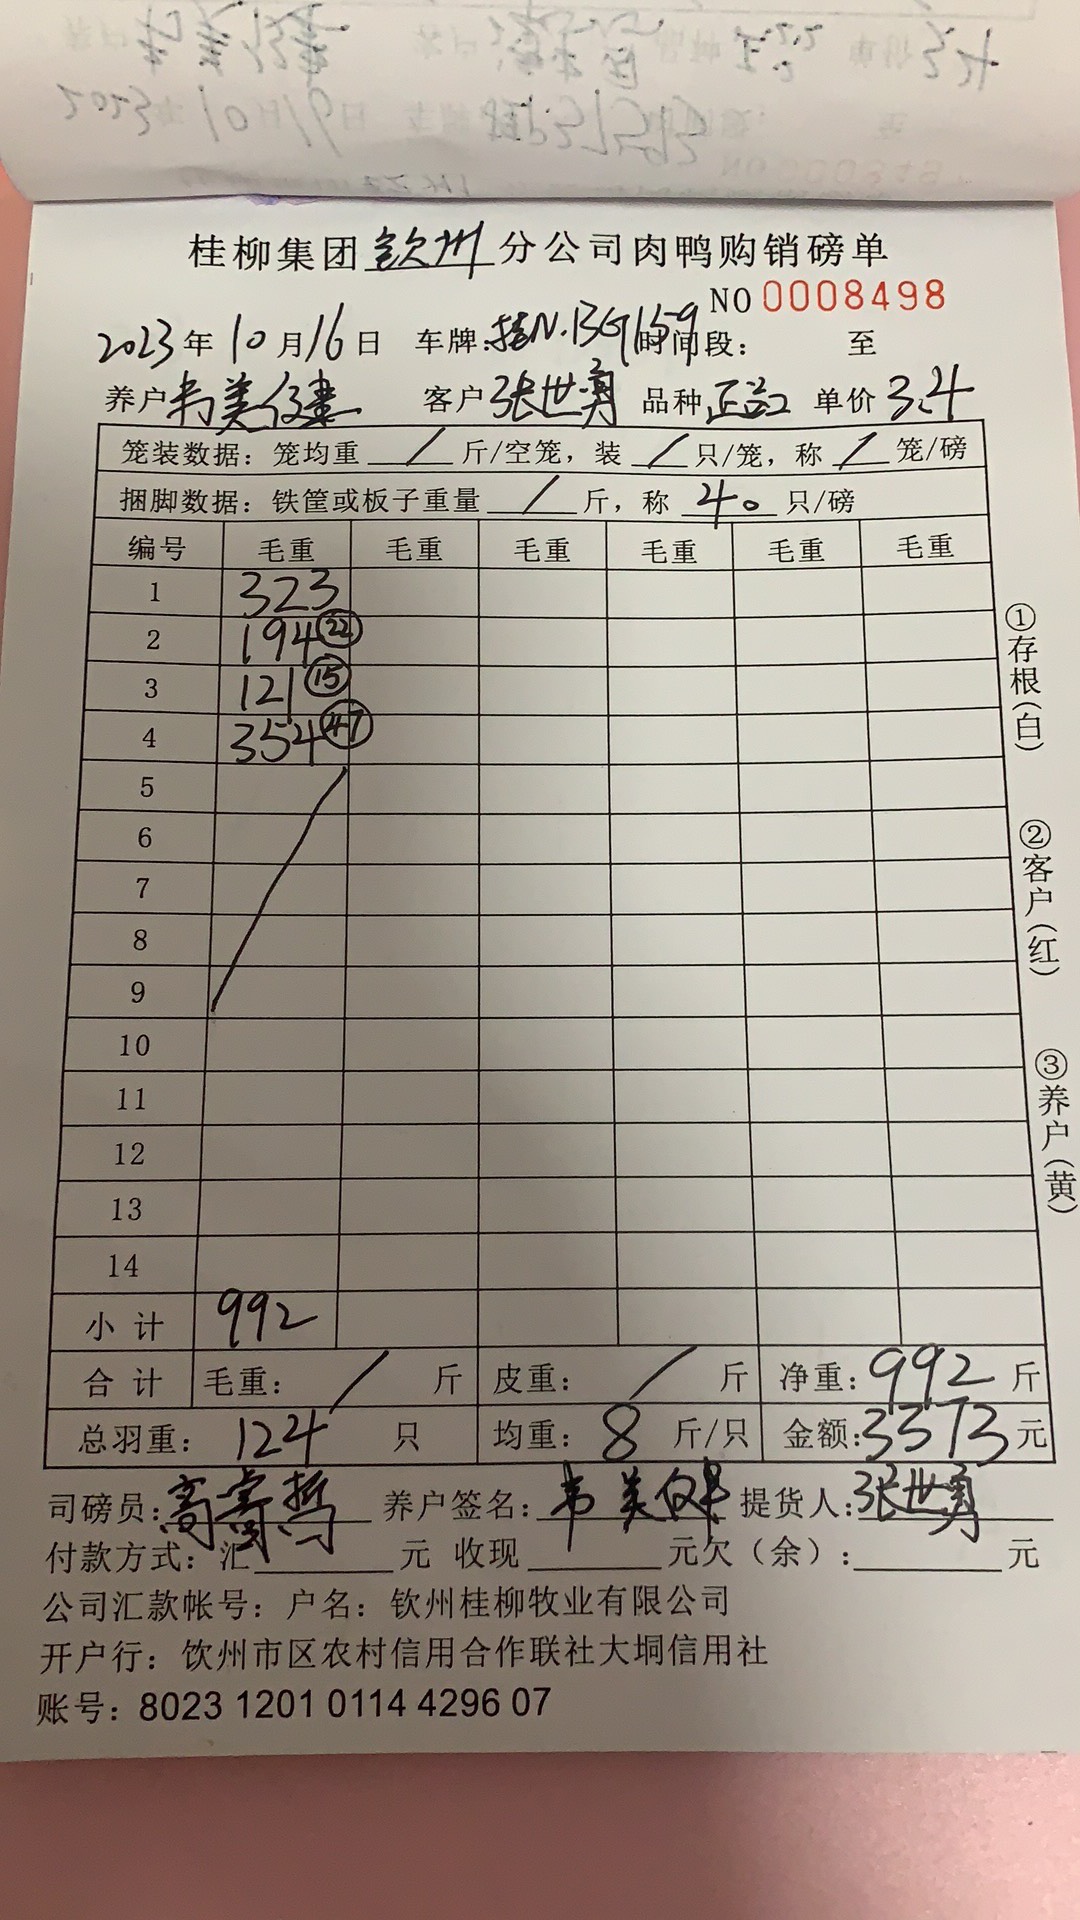 桂柳集团钦州分公司肉鸭购销磅单
NO 0008498
2023年10月16日 车牌:桂N.BG1159 时间段: 至
养户韦美 客户张世勇 品种 单价3.4
笼装数据:笼均重 / 斤/空笼,装 / 只/笼,称 / 笼/磅
捆脚数据:铁筐或板子重量 / 斤,称 40 只/磅
编号 毛重 毛重 毛重 毛重 毛重 毛重
1 323
2 194 ㉒
3 121 ⑮
4 354 ㊼
5
6
7
8
9
10
11
12
13
14
小计 992
合计 毛重: / 斤 皮重: / 斤 净重:992斤
总羽重:124只 均重:8斤/只 金额:3373元
司磅员:高 养户签名:韦美 提货人:张世勇
付款方式:汇 元 收现 元欠(余): 元
公司汇款帐号:户名:钦州桂柳牧业有限公司
开户行:钦州市区农村信用合作联社大垌信用社
账号:8023 1201 0114 4296 07
①存根(白)
②客户(红)
③养户(黄)